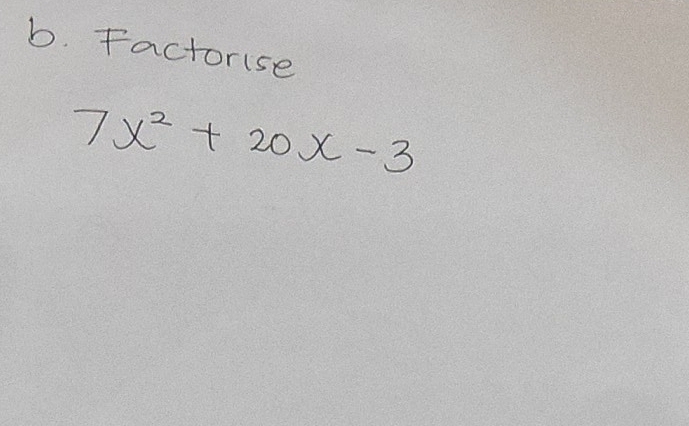 b. Factorise
7x² + 20x - 3